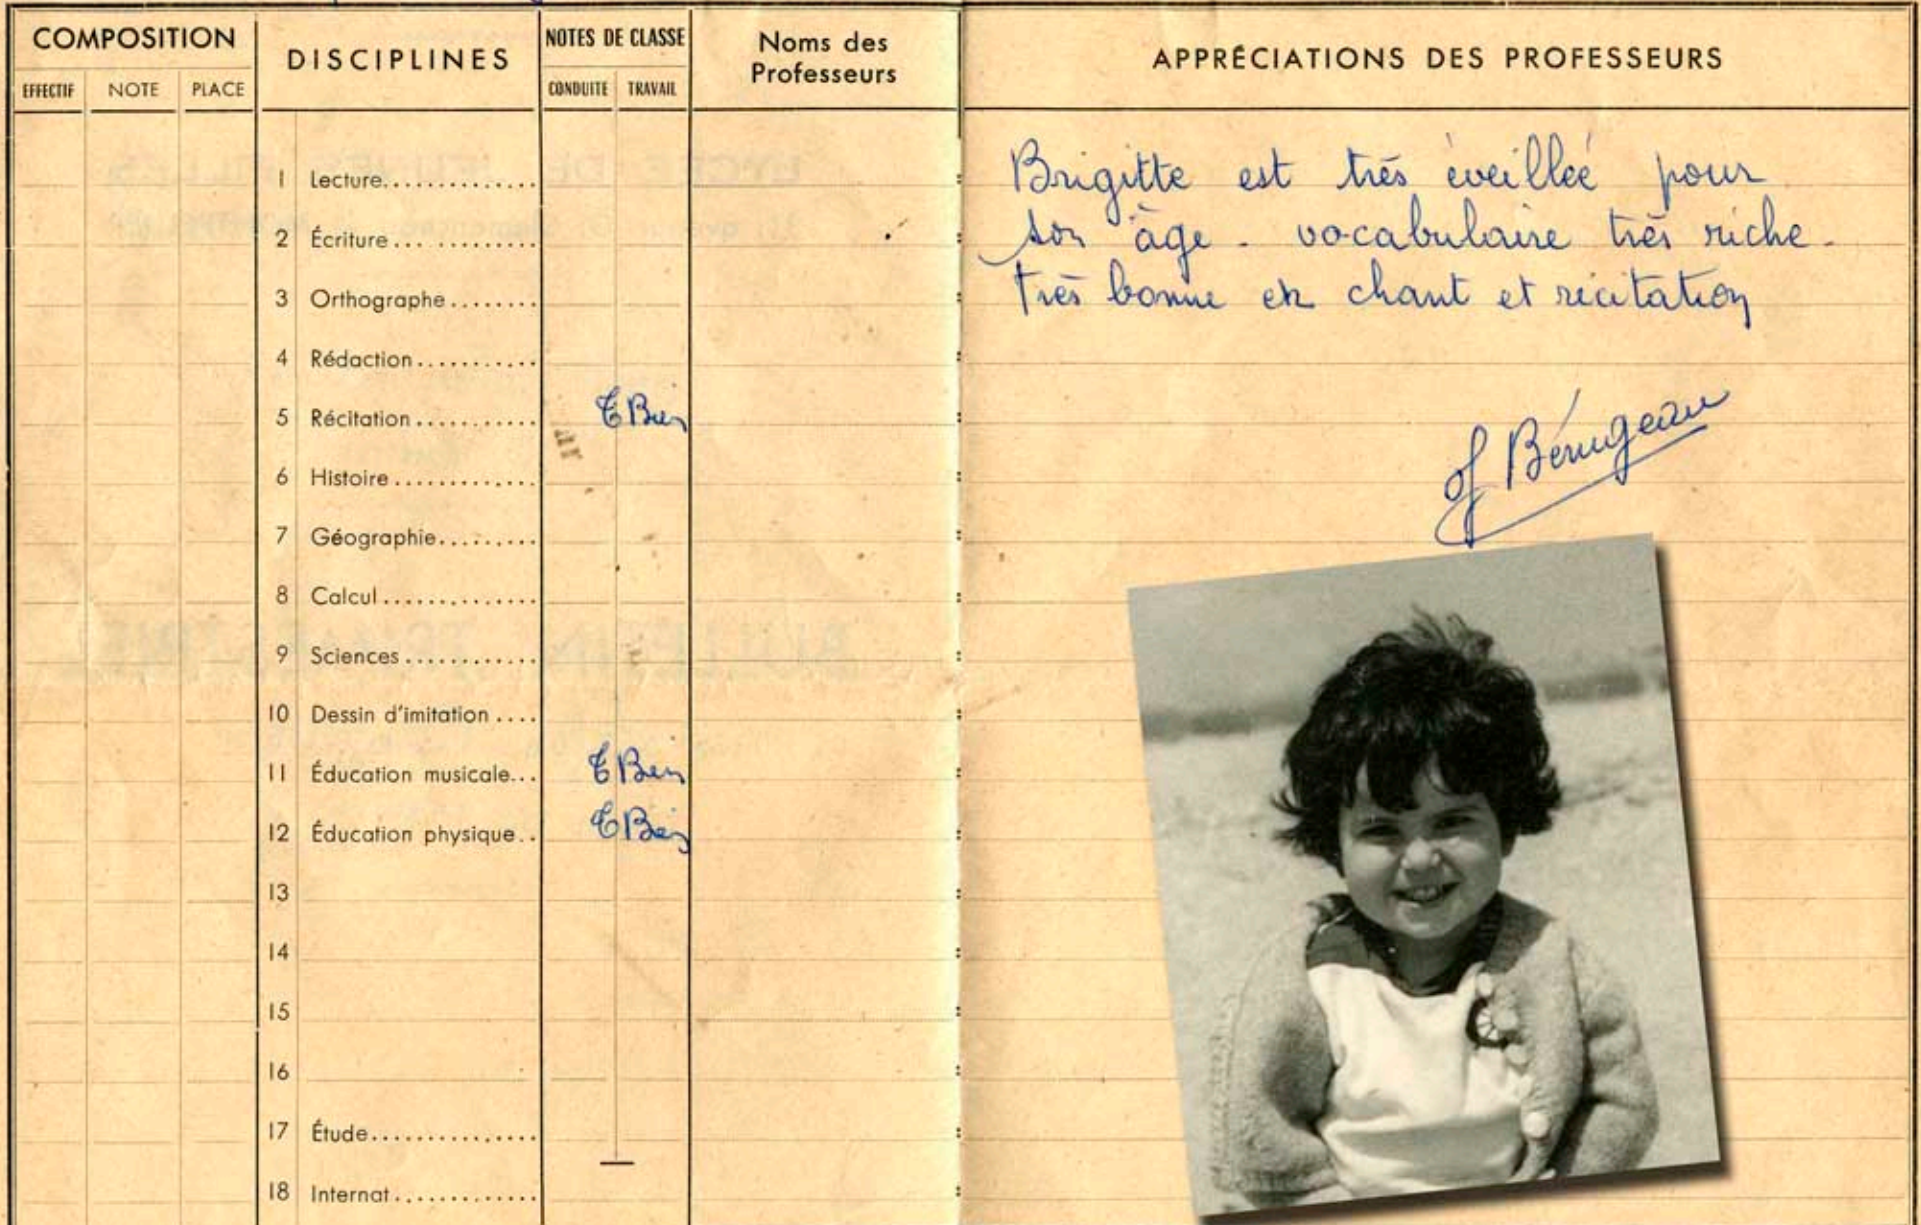 COMPOSITION
EFFECTIF NOTE PLACE
DISCIPLINES
NOTES DE CLASSE
CONDUITE TRAVAIL
Noms des
Professeurs
APPRÉCIATIONS DES PROFESSEURS
1 Lecture..............
2 Écriture... ..........
3 Orthographe........
4 Rédaction...........
5 Récitation........... T Bien
6 Histoire.............
7 Géographie.........
8 Calcul..............
9 Sciences............
10 Dessin d'imitation ....
11 Éducation musicale... T Bien
12 Éducation physique.. T Bien
13
14
15
16
17 Étude...............
18 Internat.............
Brigitte est très éveillée pour
son âge - vocabulaire très riche -
très bonne en chant et récitation